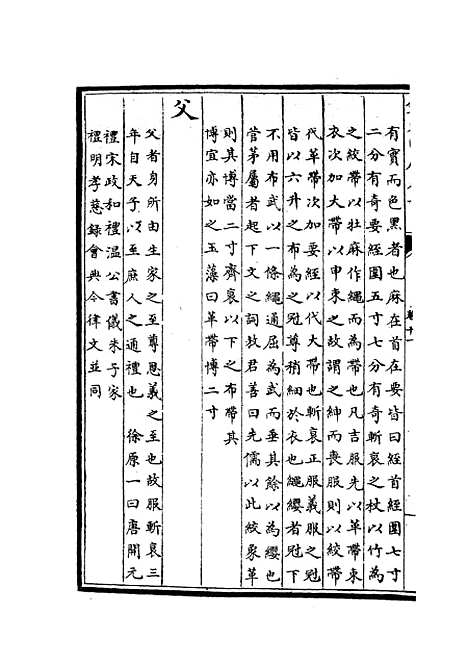 卷十一
有實而色黑者也麻在首在要皆曰絰首絰圍七寸
二分有奇要絰圍五寸七分有奇斬衰之杖以竹為
之絞帶以牡麻作繩而為帶也凡吉服先以革帶束
衣次加大帶以申束之故謂之紳而喪服則以絞帶
代革帶次加要絰以代大帶也斬衰正服義服之冠
皆以六升之布為之冠尊稍細於衣也繩纓者冠下
不用布武以一條繩通屈為武而垂其餘以為纓也
菅茅屬者起下文之詞敖君善曰先儒以此絞象革
則其博當二寸齊衰以下之布帶其
博宜亦如之玉藻曰革帶博二寸
父
父者身所由生家之至尊恩義之至也故服斬衰三
年自天子以至庶人之通禮也 徐原一曰唐開元
禮宋政和禮溫公書儀朱子家
禮明孝慈錄會典今律文並同